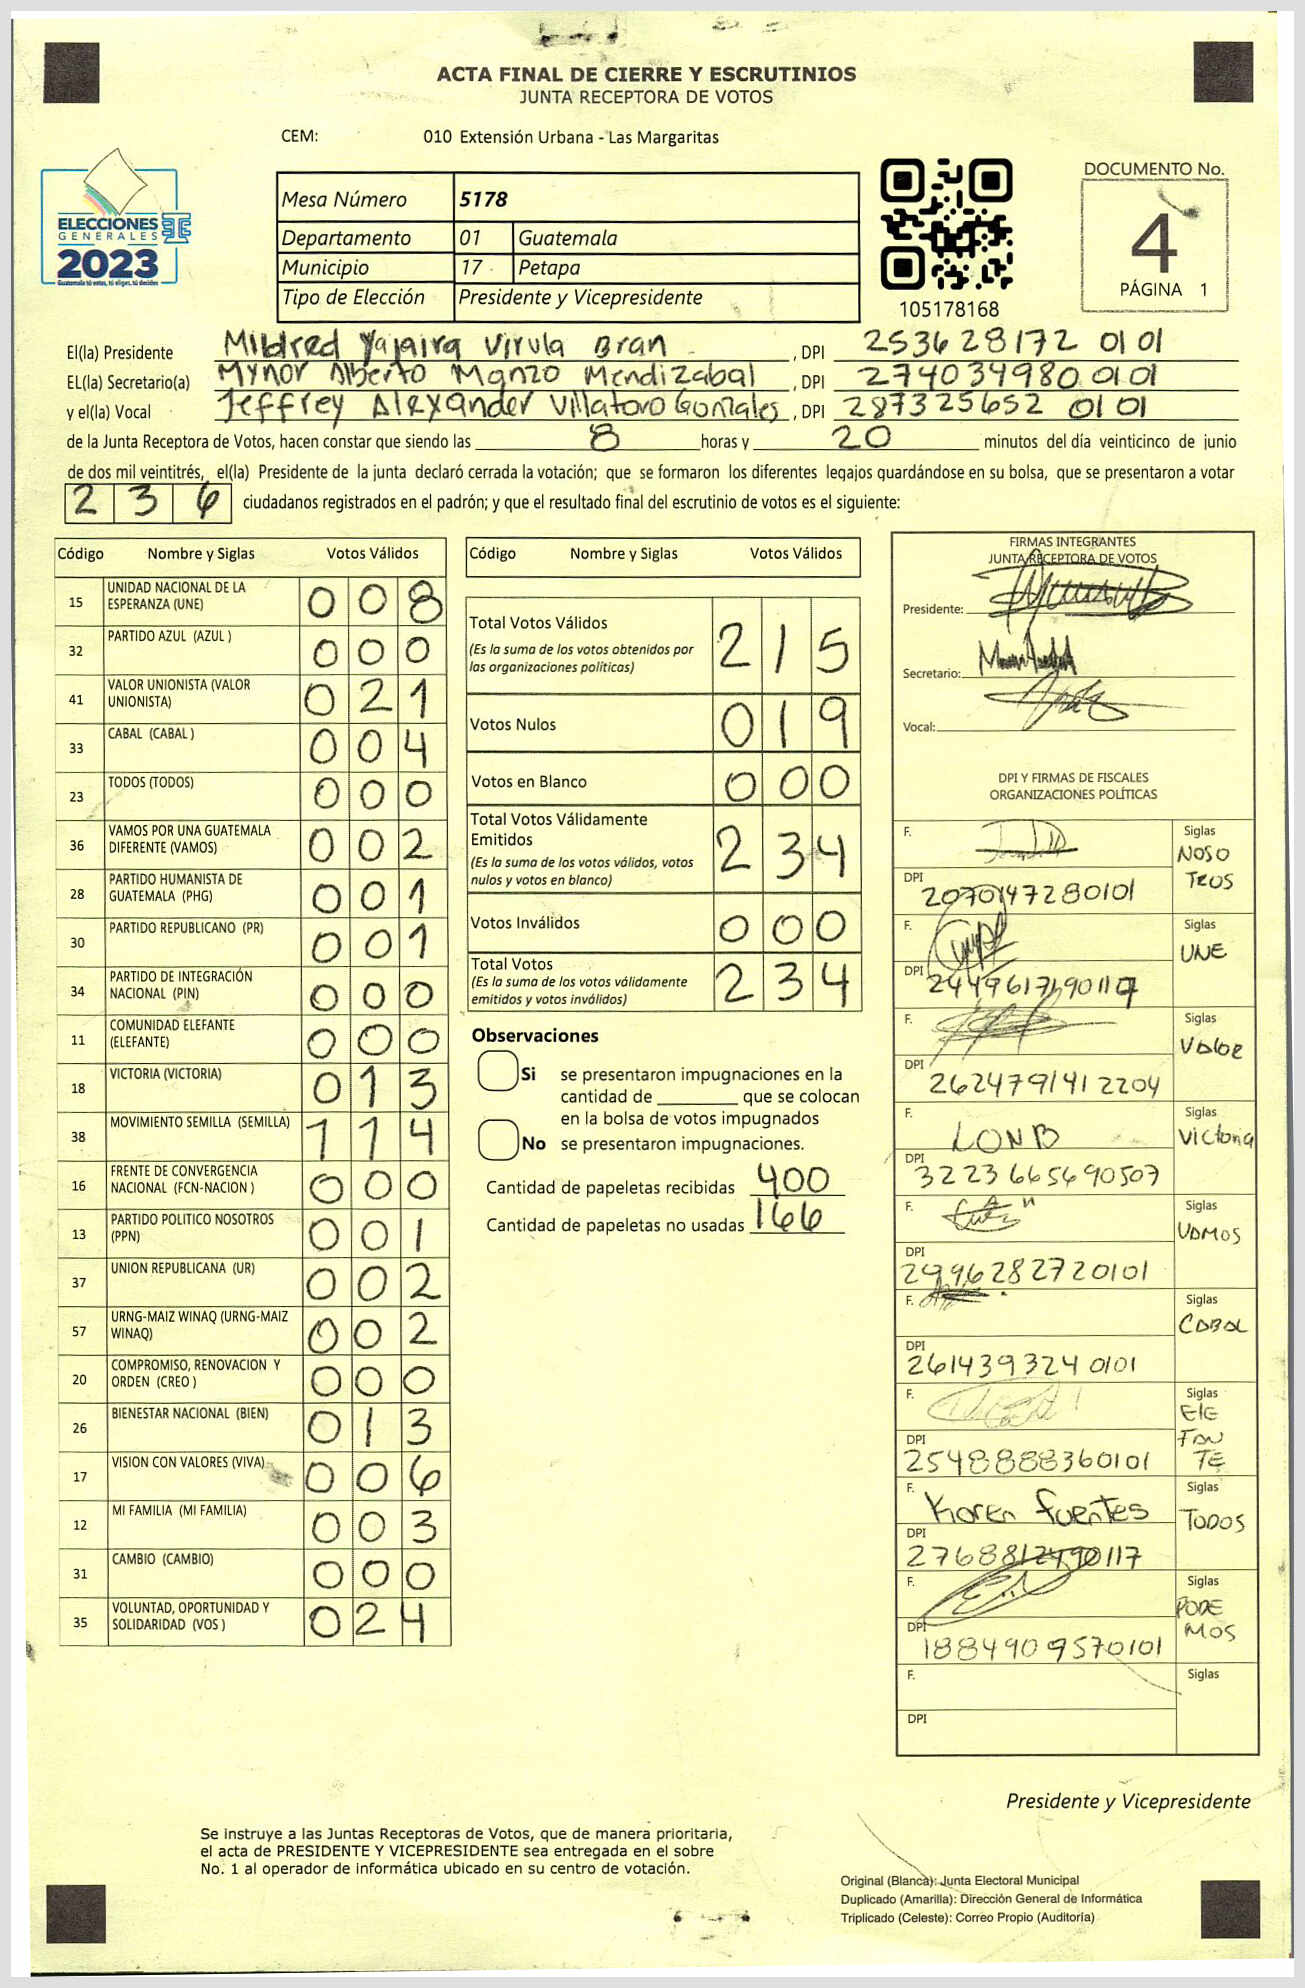 ACTA FINAL DE CIERRE Y ESCRUTINIOS
JUNTA RECEPTORA DE VOTOS
CEM: 010 Extensión Urbana - Las Margaritas
ELECCIONES
GENERALES
2023
Guatemala tú votas, tú eliges, tú decides
Mesa Número 5178
Departamento 01 Guatemala
Municipio 17 Petapa
Tipo de Elección Presidente y Vicepresidente
105178168
DOCUMENTO No.
4
PÁGINA 1
El(la) Presidente Mildred Yajaira Virula Bran, DPI 253628172 0101
EL(la) Secretario(a) Mynor Alberto Manzo Mendizabal, DPI 274034980 0101
y el(la) Vocal Jeffrey Alexander Villatoro Gonzales, DPI 287325652 0101
de la Junta Receptora de Votos, hacen constar que siendo las 8 horas y 20 minutos del día veinticinco de junio
de dos mil veintitrés, el(la) Presidente de la junta declaró cerrada la votación; que se formaron los diferentes legajos quardándose en su bolsa, que se presentaron a votar
236 ciudadanos registrados en el padrón; y que el resultado final del escrutinio de votos es el siguiente:
Código Nombre y Siglas Votos Válidos
15 UNIDAD NACIONAL DE LA ESPERANZA (UNE) 008
32 PARTIDO AZUL (AZUL ) 000
41 VALOR UNIONISTA (VALOR UNIONISTA) 021
33 CABAL (CABAL ) 004
23 TODOS (TODOS) 000
36 VAMOS POR UNA GUATEMALA DIFERENTE (VAMOS) 002
28 PARTIDO HUMANISTA DE GUATEMALA (PHG) 001
30 PARTIDO REPUBLICANO (PR) 001
34 PARTIDO DE INTEGRACIÓN NACIONAL (PIN) 000
11 COMUNIDAD ELEFANTE (ELEFANTE) 000
18 VICTORIA (VICTORIA) 013
38 MOVIMIENTO SEMILLA (SEMILLA) 114
16 FRENTE DE CONVERGENCIA NACIONAL (FCN-NACION ) 000
13 PARTIDO POLITICO NOSOTROS (PPN) 001
37 UNION REPUBLICANA (UR) 002
57 URNG-MAIZ WINAQ (URNG-MAIZ WINAQ) 002
20 COMPROMISO, RENOVACION Y ORDEN (CREO ) 000
26 BIENESTAR NACIONAL (BIEN) 013
17 VISION CON VALORES (VIVA) 006
12 MI FAMILIA (MI FAMILIA) 003
31 CAMBIO (CAMBIO) 000
35 VOLUNTAD, OPORTUNIDAD Y SOLIDARIDAD (VOS ) 024
Código Nombre y Siglas Votos Válidos
Total Votos Válidos 215
(Es la suma de los votos obtenidos por
las organizaciones políticas)
Votos Nulos 019
Votos en Blanco 000
Total Votos Válidamente
Emitidos 234
(Es la suma de los votos válidos, votos
nulos y votos en blanco)
Votos Inválidos 000
Total Votos 234
(Es la suma de los votos válidamente
emitidos y votos inválidos)
Observaciones
Si se presentaron impugnaciones en la
cantidad de ________ que se colocan
en la bolsa de votos impugnados
No se presentaron impugnaciones.
Cantidad de papeletas recibidas 400
Cantidad de papeletas no usadas 166
FIRMAS INTEGRANTES
JUNTA RECEPTORA DE VOTOS
Presidente:
Secretario:
Vocal:
DPI Y FIRMAS DE FISCALES
ORGANIZACIONES POLÍTICAS
F. Siglas NOSO TROS
DPI 2070147280101
F. Siglas UNE
DPI
F. Siglas VALOR
DPI 2624791412204
F. Siglas Victoria
DPI 3223665690507
F. Siglas VAMOS
DPI 2996282720101
F. Siglas CABAL
DPI 261439324 0101
F. Siglas ELE FAN TE
DPI 2548888360101
F. Karen Fuentes Siglas TODOS
DPI 2768812490117
F. Siglas PODE MOS
DPI 1884909570101
F. Siglas
DPI
Presidente y Vicepresidente
Se instruye a las Juntas Receptoras de Votos, que de manera prioritaria,
el acta de PRESIDENTE Y VICEPRESIDENTE sea entregada en el sobre
No. 1 al operador de informática ubicado en su centro de votación.
Original (Blanca): Junta Electoral Municipal
Duplicado (Amarilla): Dirección General de Informática
Triplicado (Celeste): Correo Propio (Auditoría)